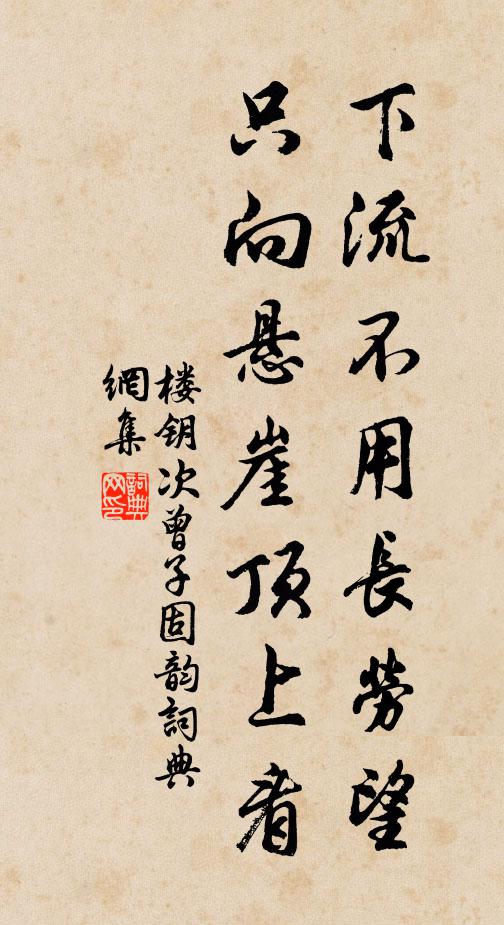 下流不用長勞望
只向悬崖顶上看
楼钥次曾子固韵詞典
網集
詞典
网印